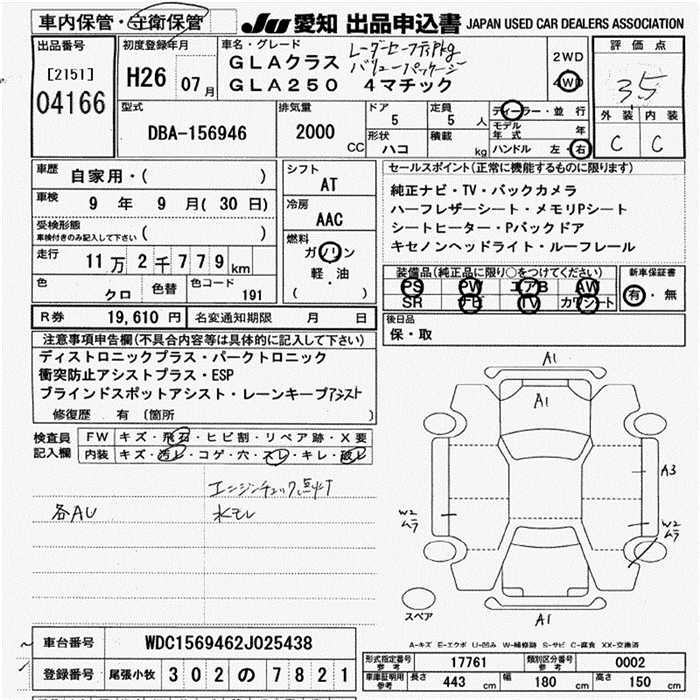 車内保管・守衛保管 JU 愛知 出品申込書 JAPAN USED CAR DEALERS ASSOCIATION
出品番号 [2151] 04166
初度登録年月 H26 07月
車名・グレード レーダーセーフティpkg
GLAクラス バリューパッケージ
GLA250 4マチック
2WD
4WD
評価点
3.5
外装 内装
C C
型式 DBA-156946
排気量 2000 CC
ドア 5 定員 5 人
形状 ハコ 積載 kg
ディーラー・並行
モデル年式 年
ハンドル 左・右
車歴 自家用・( )
車検 9 年 9 月 ( 30 日)
受検形態
車検付きのみ記入して下さい ( )
走行 11万2千779km
色 クロ 色替 色コード 191
シフト AT
冷房 AAC
燃料 ガソリン
軽・油
( )
セールスポイント(正常に機能するものに限ります)
純正ナビ・TV・バックカメラ
ハーフレザーシート・メモリPシート
シートヒーター・Pバックドア
キセノンヘッドライト・ルーフレール
装備品(純正品に限り○をつけてください)
PS PW エアB AW
SR TV カワシート
新車保証書
有・無
R券 19,610 円 名変通知期限 月 日
後日品
保・取
注意事項申告欄(不具合内容等は具体的に記入して下さい)
ディストロニックプラス・パークトロニック
衝突防止アシストプラス・ESP
ブラインドスポットアシスト・レーンキープアシスト
修復歴 有 (箇所 )
検査員記入欄
FW キズ・飛石・ヒビ割・リペア跡・X要
内装 キズ・汚レ・コゲ・穴・スレ・キレ・破レ
エンジンチェック点灯
各AU 水モレ
A1
A1
A3
W2 ムラ
W2 ムラ
A1
スペア
A-キズ E-エクボ U-凹み W-補修跡 S-サビ C-腐食 XX-交換済
車台番号 WDC1569462J025438
登録番号 尾張小牧 302 の 7821
形式指定番号 参考 17761 類別区分番号 参考 0002
車庫証明用 参考 長さ 443 cm 幅 180 cm 高さ 150 cm